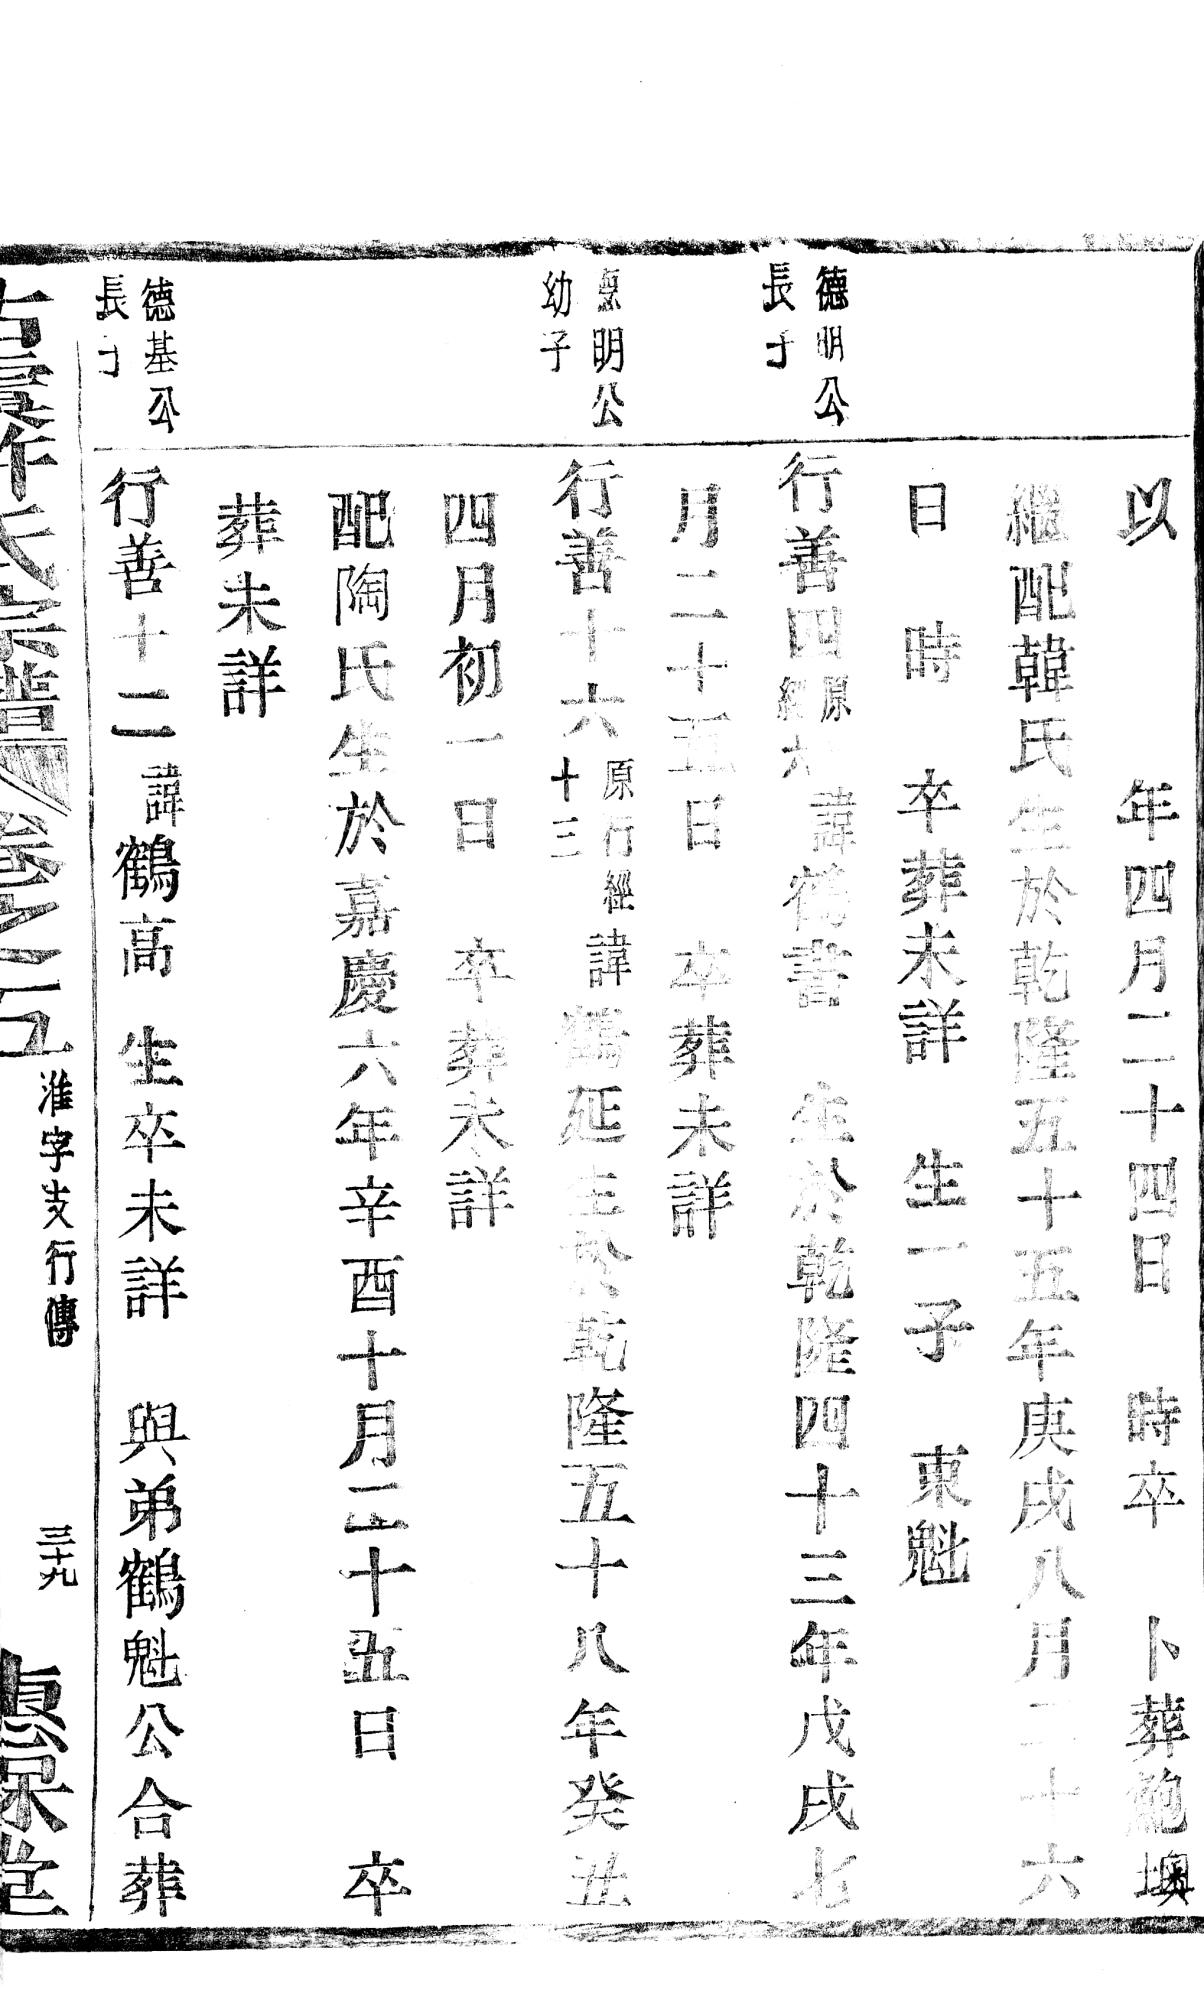 以　年四月二十四日　時卒　卜葬鮑墺
繼配韓氏生於乾隆五十五年庚戌八月二十六
日　時　卒葬未詳　生一子　東魁
德明公
長子
行善四原經六諱鶴書　生於乾隆四十三年戊戌七
月二十五日　卒葬未詳
德明公
幼子
行善十六原行經十三諱鶴延生於乾隆五十八年癸丑
四月初一日　卒葬未詳
配陶氏生於嘉慶六年辛酉十月二十五日　卒
葬未詳
德基公
長子
行善十二諱鶴高　生卒未詳　與弟鶴魁公合葬
氏宗譜　卷之五　淮字支行傳　三十九